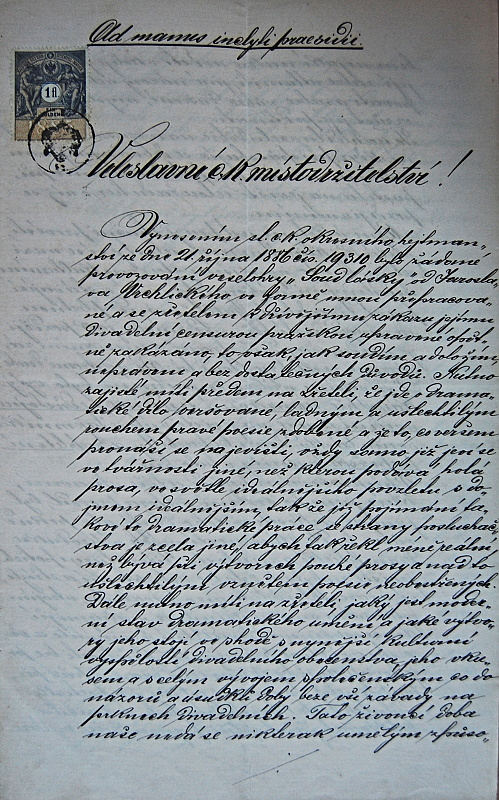 Ad manus inclyti praesidii.
1 fl
Veleslavné c. k. místodržitelství!
Vynesením sl. c. k. okresního hejtman-
ství ze dne 21. října 1886 čís. 19310 bylo žádané
provozování veselohry „Soud lásky“ od Jarosla-
va Vrchlického ve formě mnou přepracova-
né a se zřetelem k dřívějšímu zákazu jejímu
divadelní censurou pražskou upravené opět-
ně zakázáno, to však, jak soudím a doložím
neprávem a bez dostatečných důvodů. Nutno
zajisté míti předem na zřeteli, že jde o drama-
tické dílo veršované, ladným a ušlechtilým
rouchem pravé poesie zdobené a že to, co veršem
pronáší se na jevišti, vždy samo již jeví se
ve tvářnosti jiné, než kterou podává holá
prosa, ve světle ideálnějšího vzletu s do-
jmem ideálnějším, takže již pojímání ta-
kové to dramatické práce se strany posluchač-
stva je zcela jiné, abych tak řekl méně reální
než bývá při výtvorech pouhé prosy a nad to
ušlechtilým vznětem poesie neobestřených.
Dále nutno míti na zřeteli, jaký jest moder-
ní stav dramatického umění a jaké výtvo-
ry jeho stojí ve shodě s nynější kulturní
vyspělostí divadelního obecenstva, jeho vku-
sem a s celým vývojem společenským co do
názorů a vsudků doby beze vší závady na
prknech divadelních. Tato živoucí doba
naše nedá se nikterak umělým způso-